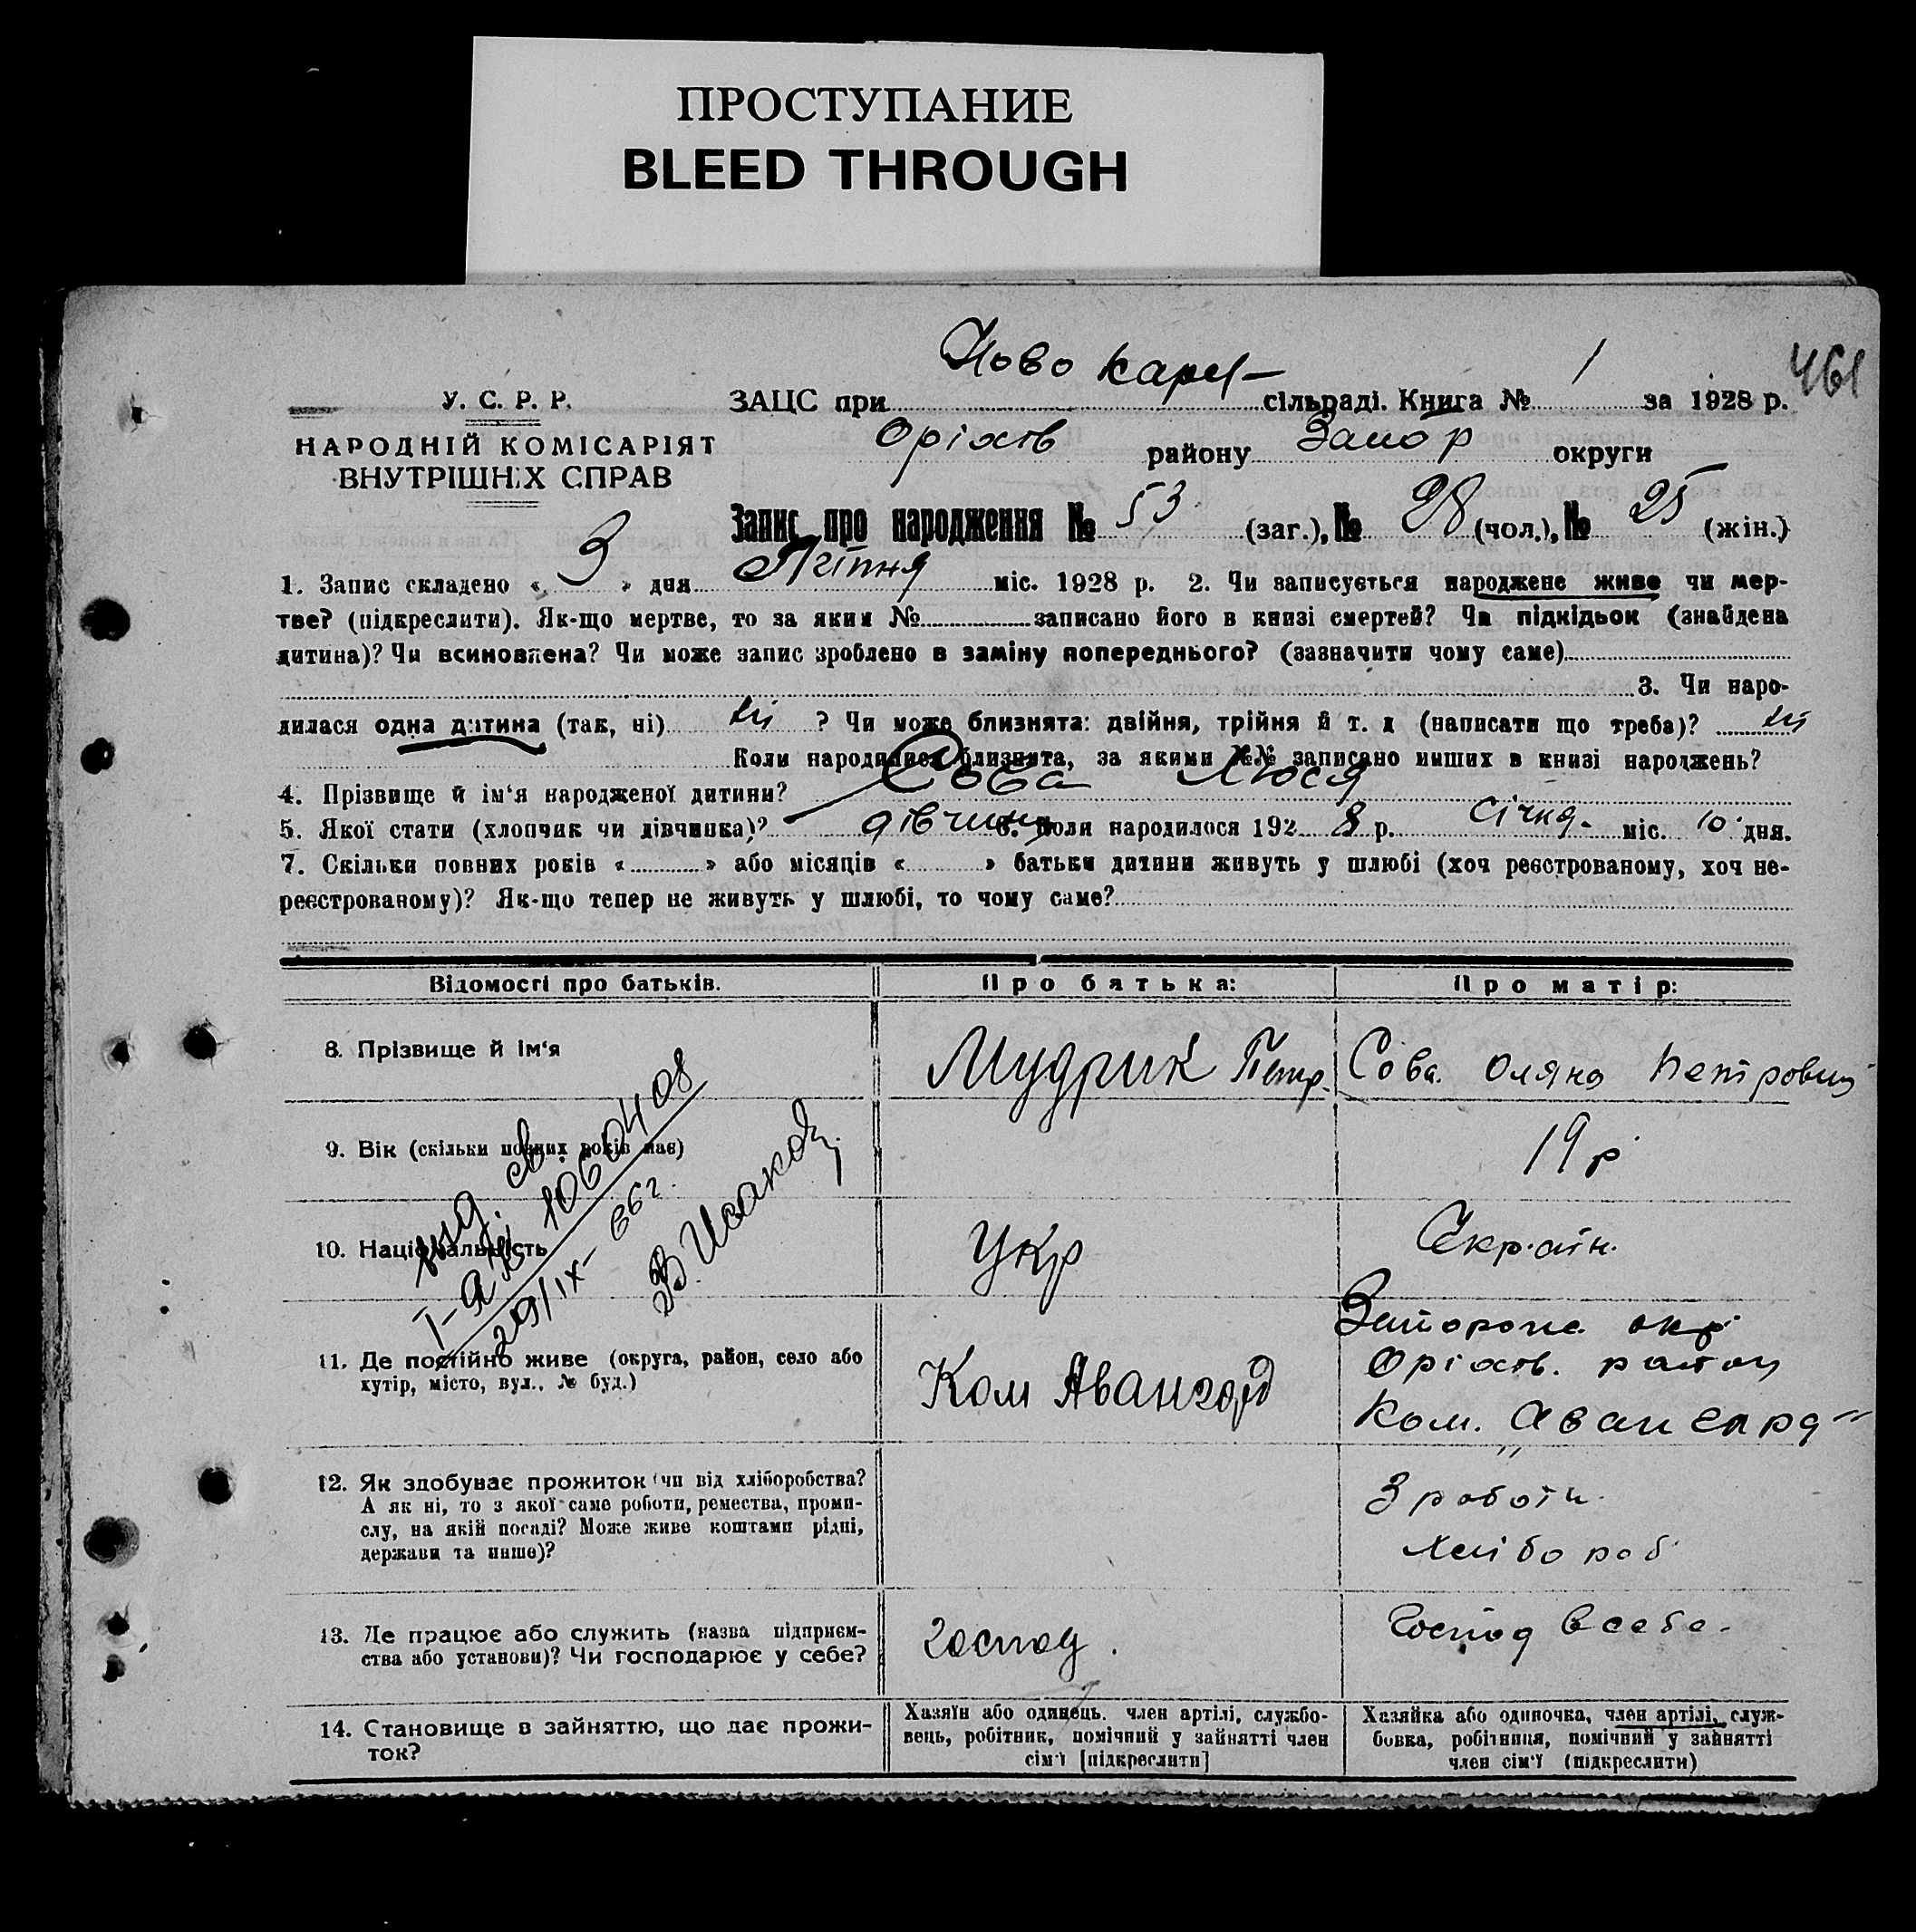 ПРОСТУПАНИЕ
BLEED THROUGH
461
У. С. Р. Р.
НАРОДНІЙ КОМІСАРІЯТ
ВНУТРІШНІХ СПРАВ
ЗАЦС при Ново Карл- сільраді. Книга № 1 за 1928 р.
Оріхів району Запор округи
Запис про народження № 53 (заг.), № 28 (чол.), № 25 (жін.)
1. Запис складено « 3 » дня Квітня міс. 1928 р. 2. Чи записується народжене живе чи мер-
тве? (підкреслити). Як-що мертве, то за яким № записано його в книзі смертей? Чи підкідьок (знайдена
дитина)? Чи всиновлена? Чи може запис зроблено в заміну попереднього? (зазначити чому саме)
3. Чи наро-
дилася одна дитина (так, ні) ? Чи може близнята: двійня, трійня й т. д (написати що треба)?
Коли народилися близнята, за якими №№ записано инших в книзі народжень?
4. Прізвище й ім‘я народженої дитини? Сова Люся
5. Якої стати (хлопчик чи дівчинка)? дівчина 6. Коли народилося 192 8 р. січня міс. 10 дня.
7. Скільки повних років « » або місяців « » батьки дитини живуть у шлюбі (хоч реєстрованому, хоч не-
реєстрованому)? Як-що тепер не живуть у шлюбі, то чому саме?
Відомості про батьків. Про батька: Про матір:
8. Прізвище й ім‘я Мудрик Петр. Сова Оляна Петровна
9. Вік (скільки повних років має) 19 р
10. Національність Укр Україн.
11. Де постійно живе (округа, район, село або
хутір, місто, вул.. № буд.) Ком Авангард Запорож. окр Оріхів. район
Ком. „Авангард"
выд. св.
І-а № 1060408
29/IX- 66 г.
12. Як здобуває прожиток (чи від хліборобства?
А як ні, то з якої саме роботи, ремества, проми-
слу, на якій посаді? Може живе коштами рідні,
держави та инше)? З роботи хлібороб
13. Де працює або служить (назва підприєм-
ства або установи)? Чи господарює у себе? господ. Господ в себе.
14. Становище в зайняттю, що дає прожи-
ток?
Хазяїн або одинець. член артілі, службо-
вець, робітник, помічний у зайнятті член
сім‘ї [підкреслити]
Хазяйка або одиночка, член артілі, служ-
бовка, робітниця, помічний у зайнятті
член сім‘ї (підкреслити)